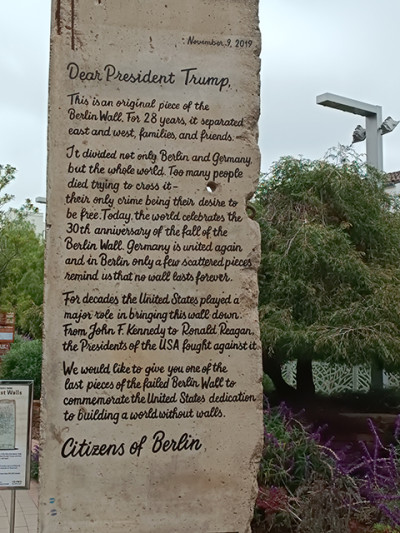 November 9, 2019
Dear President Trump,
This is an original piece of the
Berlin Wall. For 28 years, it separated
east and west, families, and friends.
It divided not only Berlin and Germany,
but the whole world. Too many people
died trying to cross it –
their only crime being their desire to
be free. Today, the world celebrates the
30th anniversary of the fall of the
Berlin Wall. Germany is united again
and in Berlin only a few scattered pieces
remind us that no wall lasts forever.
For decades the United States played a
major role in bringing this wall down.
From John F. Kennedy to Ronald Reagan,
the Presidents of the USA fought against it.
We would like to give you one of the
last pieces of the failed Berlin Wall to
commemorate the United States dedication
to building a world without walls.
Citizens of Berlin
Walls